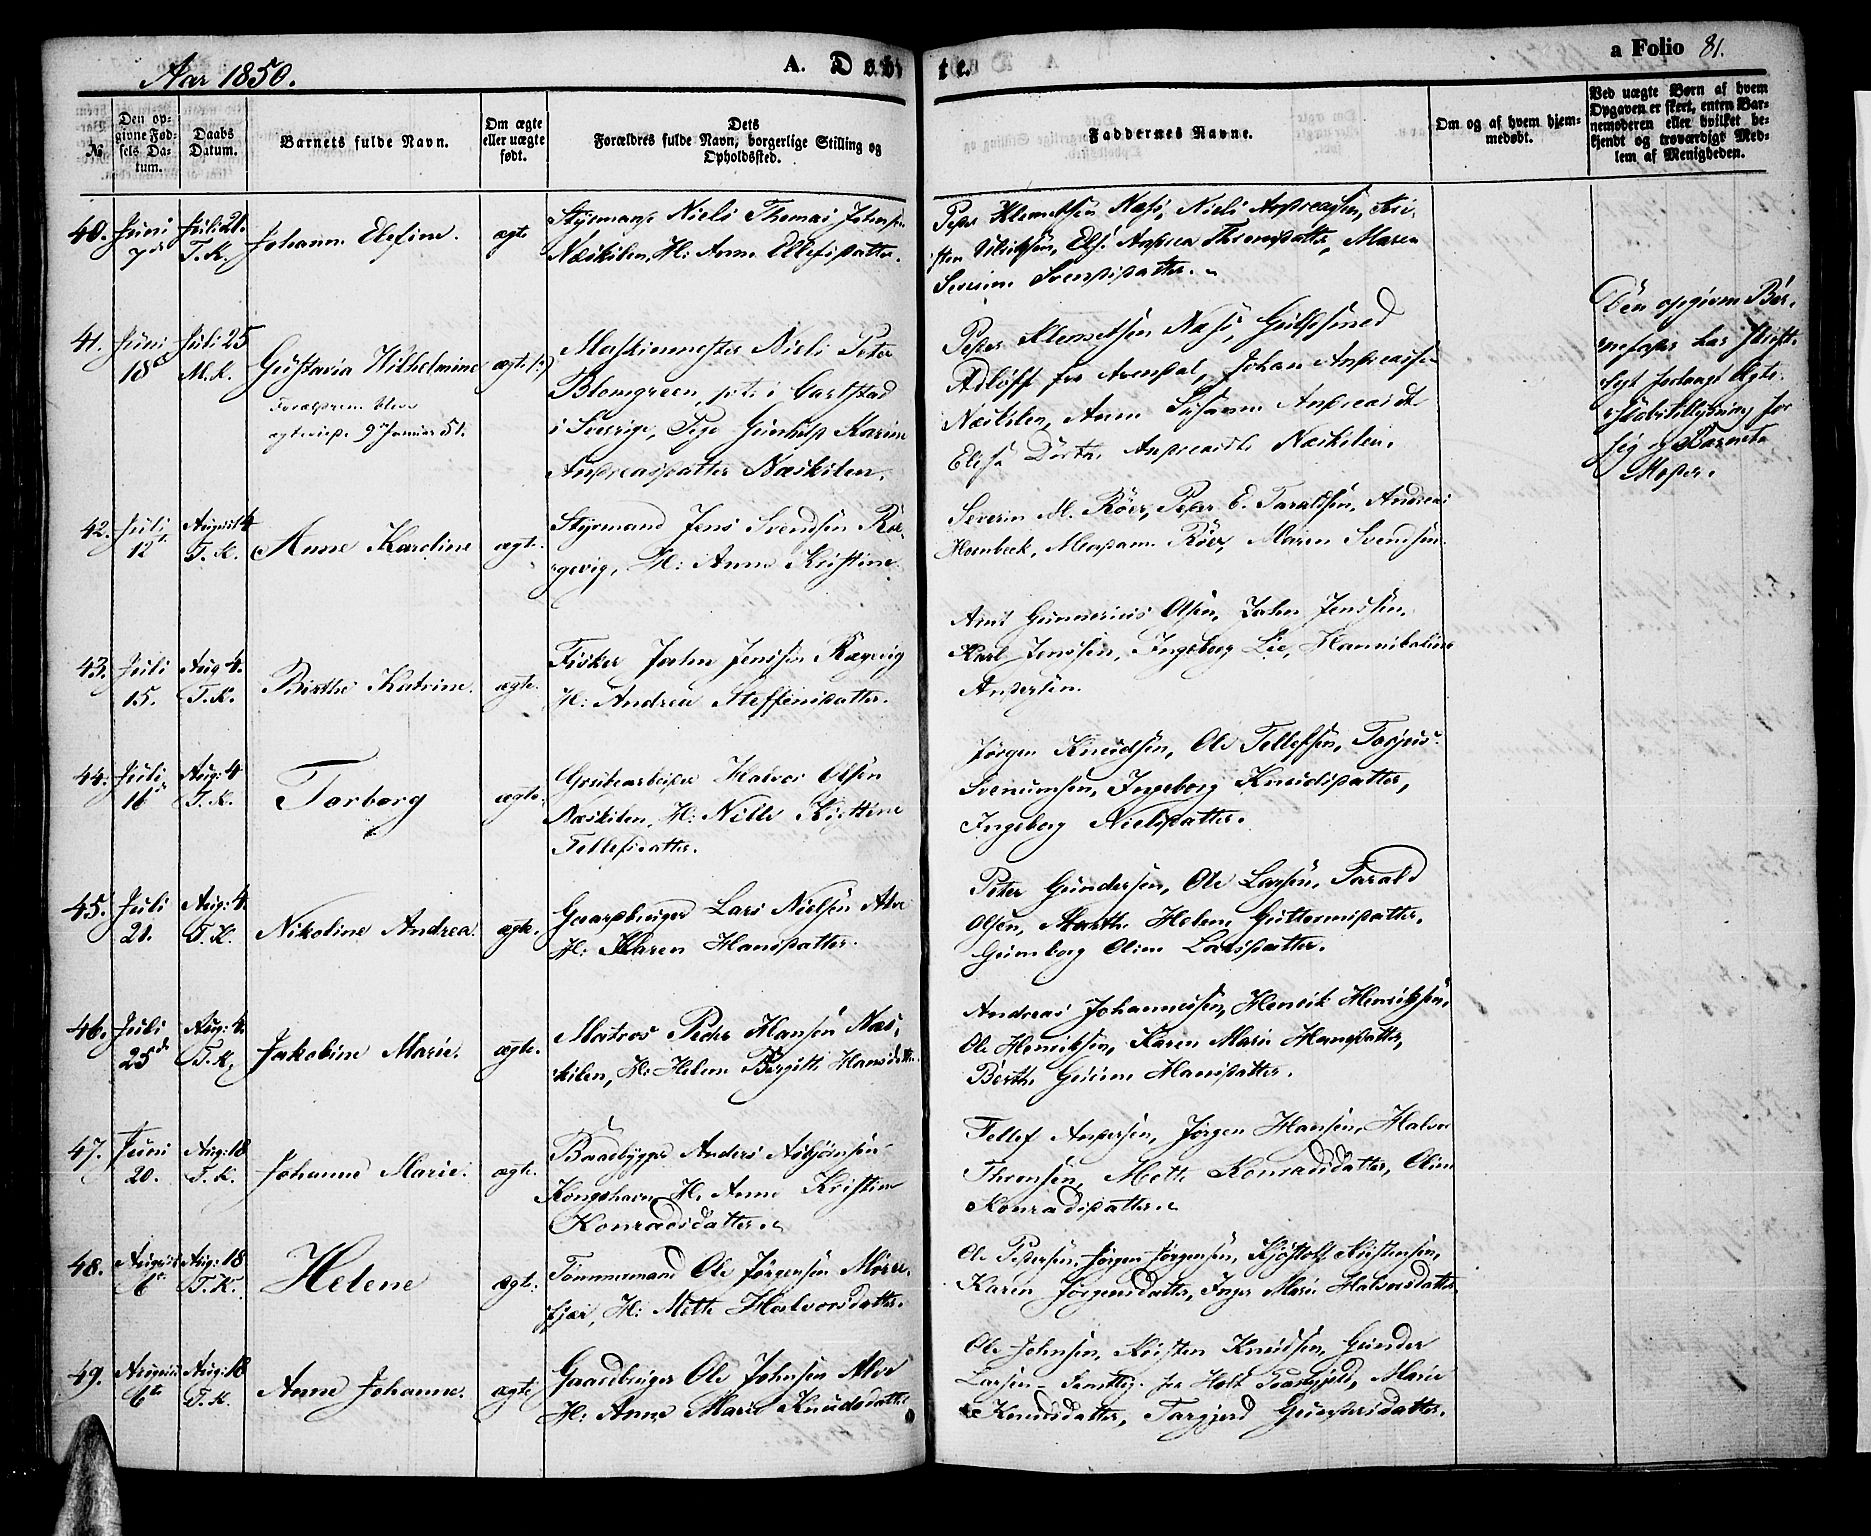 Aar 1850.
A. Døbte.
a Folio 81.
№
Den opgivne Fødsels Datum.
Daabs Datum.
Barnets fulde Navn.
Om ægte eller uægte født.
Dets Forældres fulde Navn, borgerlige Stilling og Opholdssted.
Faddernes Navne.
Om og af hvem hjemmedøbt.
Ved uægte Børn af hvem Opgaven er skeet, enten Barnemoderen eller hvilket bekjendt og troværdigt Medlem af Menigheden.
40. Juni 7de
Juli 21. T. K.
Johanne Elefine.
ægte
Styrmand Niels Thomas Johnsen
Næskilen, H: Anne Ellefsdatter.
Peder Klemetsen Næs, Niels Andreassen, Kri-
sten Ulriksen, Else Andrea Thomsdatter, Maren
Severine Svendsdatter.
41. Juni 18de
Juli 25 M. K.
Gustavia Wilhelmine
Forældrene bleve
ægteviede 9de Januar 51.
ægte
Maskinmester Niels Peter
Blomgreen, p.t. i Carlstad
i Sverige, Pige Gunhild Karine
Andreasdatter Næskilen.
Peder Klemetsen Næs, Guldsmed
Adløff fra Arendal, Johan Andreassen
Næskilen, Anne Susanne Andreasdt
Elise Dorthe Andreasdt. Næskilen.
Den opgivne Bar-
nefader har skrift-
ligt forlangt Ægte-
skabstillysning for
sig og Barnets
Moder.
42. Juli 12te
August 4 T. K.
Anne Karoline
ægte.
Styrmand Jens Svendsen Ræ-
gevig, H: Anne Kristine
Severin M. Röer, Peder E. Taraldsen, Andreas
Hornbeck, Madam Röer, Maren Svendsen
43. Juli 15.
Aug 4. T. K.
Birthe Katrine.
ægte.
Fisker John Jenssen Rægevig
H: Andrea Steffensdatter.
Gunnerius Olsen, John Jenssen,
Karl Jenssen, Ingeborg Lie, Hannibaline
Andersen.
44. Juli 16de
Aug: 4 T. K.
Torborg
ægte.
Grubearbeider Halvor Olsen
Næskilen, H: Nille Kistine
Tellefsdatter.
Jørgen Knudsen, Ole Tellefsen, Torjus
Svenumsen, Ingeborg Knudsdatter,
Ingeborg Nielsdatter.
45. Juli 21.
Aug: 4. T. K.
Nikoline Andrea.
ægte.
Gaardbruger Lars Nielsen Alve
H: Karen Hansdatter.
Peter Gundersen, Ole Larsen, Tarald
Olsen, Marthe Helene Guttormsdatter,
Gunborg Oline Larsdatter.
46. Juli 25de
Aug: 4. T. K.
Jakobine Marie.
ægte.
Matros Peder Hansen Næs-
kilen, H: Helene Birgitte Hansdatter
Andreas Johannessen, Henrik Henriksen,
Ole Henriksen, Karen Marie Hansdatter,
Berthe Gurine Hansdatter.
47. Juni 20.
Aug: 18 T. K.
Johanne Marie.
ægte.
Baadbygger Anders Asbjörnsen
Kongshavn, H: Anne Kristine
Konradsdatter.
Tellef Andersen, Jørgen Hansen, Halvor
Thronsen, Mette Konradsdatter, Oline
Konradsdatter.
48. August 6te
Aug: 18 T. K.
Helene
ægte.
Tömmermand Ole Jørgensen Mörre-
fjær, H: Mette Halvorsdatter.
Ole Pedersen, Jørgen Jørgensen, Kjöstolf Kristensen,
Karen Jørgensdatter, Inger Marie Halvorsdatter
49. August 6te
Aug: 18 T. K.
Anne Johanne.
ægte
Gaardbruger Ole Johnsen Alve
H: Anne Marie Knudsdatter
Ole Johnsen, Kristen Knudsen, Gunder
Larsen – fra Holt Marie
Knudsdatter, Torgjerd Gundersdatter.